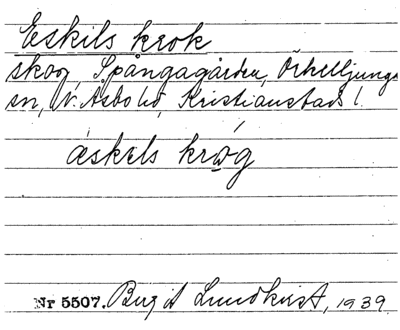 Eskils krok
skog, Spångagården, Örkelljunga
sn, N. Åsbo hd, Kristianstads l.
æskɛls krǫ́g
Nr 5507. Birgit Lundkvist, 1939